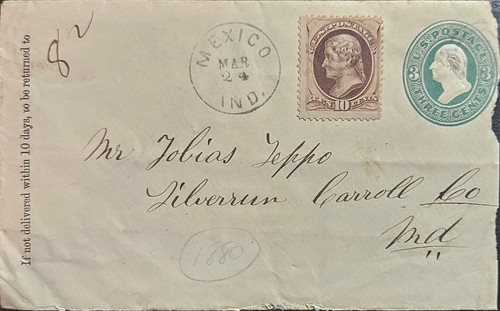 If not delivered within 10 days, to be returned to
82
MEXICO
MAR
24
IND.
10
U.S. POSTAGE
3 3
THREE CENTS
Mr Tobias Teppo
Silverrun Carroll Co
Md
1880